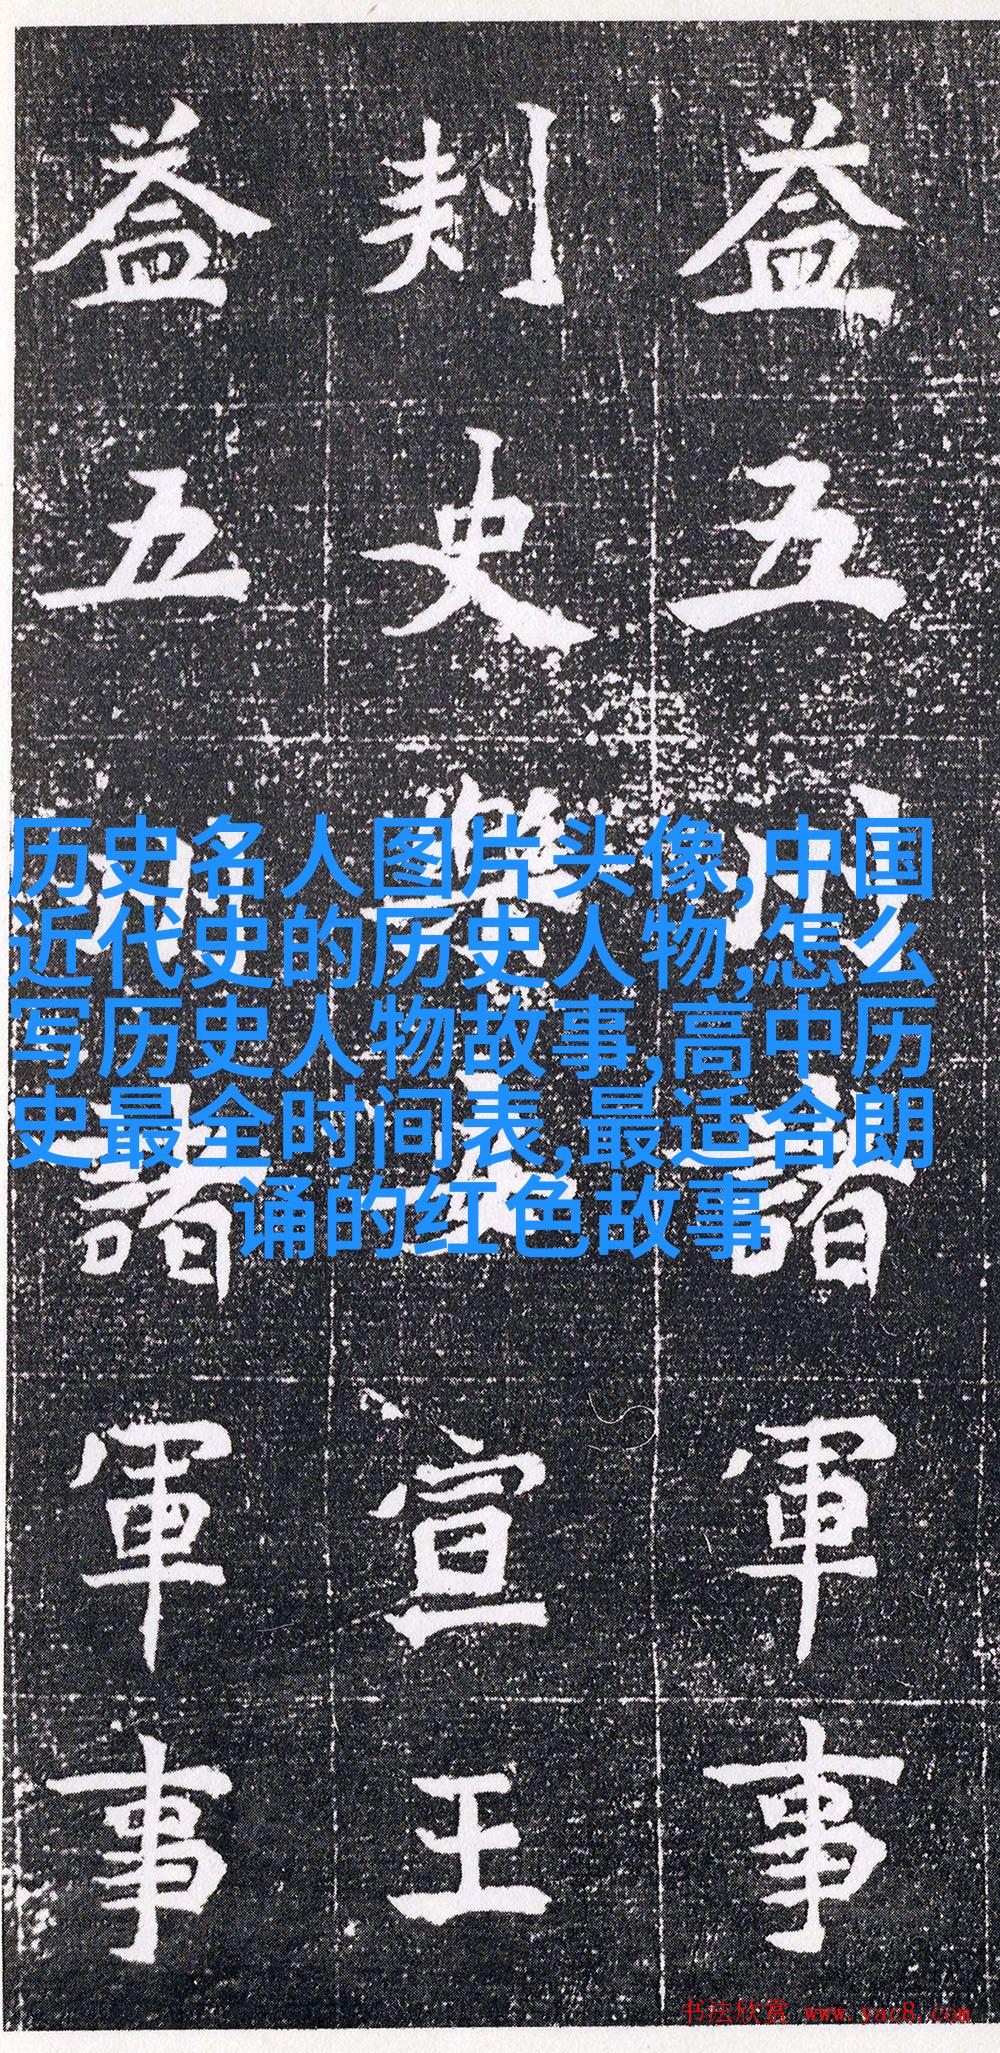 益五州諸軍事
刾史樂安宣王
益五州諸軍事
历史名人图片头像,中国
近代史的历史人物,怎么
写历史人物故事,高中历
史最全时间表,最适合朗
诵的红色故事
书法欣赏 www.yac8.com